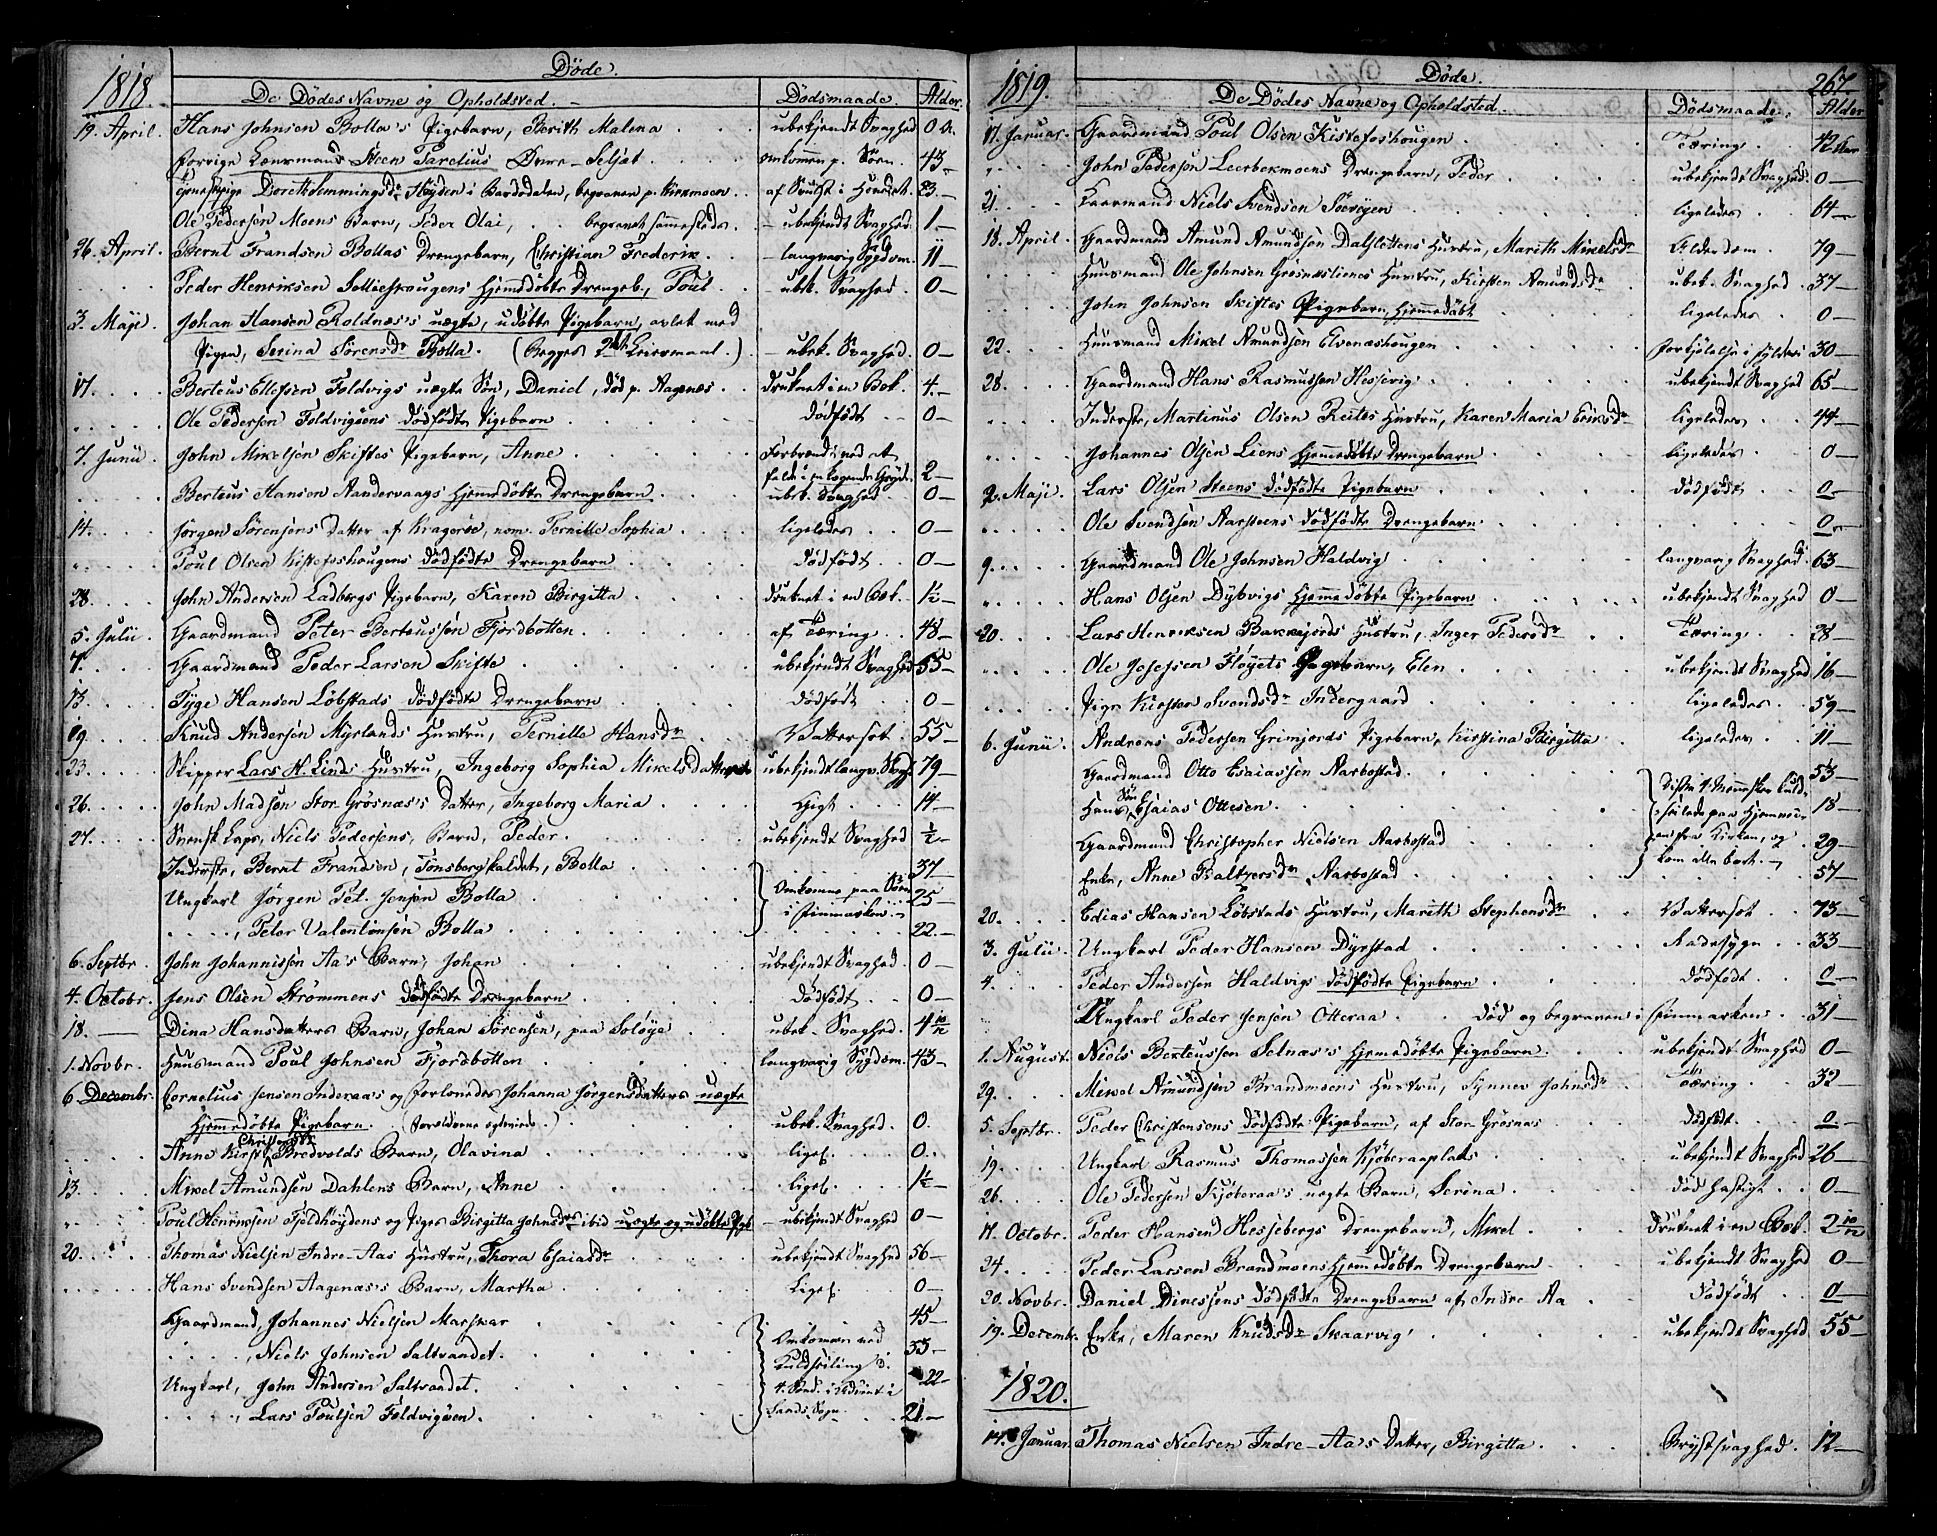 1818.
Døde.
De Dødes Navne og Opholdsted.
Dødsmaade.
Alder.
19. April. Hans Johnsen Bolla's Pigebarn, Berith Malena ubekjendt Svaghed 0 A.
forrige Lænsmand Steen Parelius Drive-Seljæt omkommen p. Søen. 43.
Doreth Hemmingsdr Høyden i Bardodalen, begraven p. Kirkmoen af Svulst i 23
Ole Pedersen Moens Barn, Peder Olai, begravet sammesteds. ubekjendt Svaghed. 1
26. April. Bernt Frandsen Bollas Drengebarn, Christian Frederik langvarig Sygdom. 11
Peder Henriksen Sollieskougens hjemedøbte Drengeb., Poul ubek. Svaghed. 0
3. Maji. Johan Hansen Roldnæs's uægte, udøbte Pigebarn, avlet med
Pigen, Serina Sørensdr Bolla. (Begges 2det Leiermaal.) ubek. Svaghed. 0
17. Berteus Ellefsen Foldvigs uægte Søn, Daniel, død p. Aagenæs druknet i en Bæk. 4.
Ole Pedersen Foldvigøens dødfødte Pigebarn dødfødt 0
7. Junii. John Mikelsen Skiftes Pigebarn, Anne Forbrændt ved at
falde i en kogende Gryde. 2
Berteus Hansen Sandervaags hjemedøbte Drengebarn. ubek. Svaghed 0
14. Jørgen Sørensens Datter af Kragerøe, nom. Pernille Sophia ligeledes 0
Poul Olsen Kistefoshougens dødfødte Drengebarn dødfødt. 0
28. John Andersen Ladbergs Pigebarn, Karen Birgitta druknet i en Bæk. 1½
5. Julii. Gaardmand Peter Berteussen Fjordbotten. af Tæring 48
7. Gaardmand Peder Larsen Skifte ubekjendt Svaghed 55
13. Tyge Hansen Løbstads dødfødte Drengebarn dødfødt 0
19. Knud Andersen Myrlands Hustru, Pernille Hansdr Vattersot 55
23. Skipper Lars H. Linds Hustru, Ingeborg Sophia Mikelsdatter ubekjendt langv. Svagh. 79
26. John Madsen Stor Grøsnæs's Datter, Ingeborg Maria Gigt 14
27. Svensk Lap, Niels Pedersens, Barn, Peder. ubekjendt Svaghed ½
Inderste, Bernt Frandsen, Tønsberg kaldet, Bolla 37
Ungkarl Jørgen Pet. Jensen Bolla Omkomne paa Søen 25
i Finmarken.
Peter Valentinsen Bolla 22.
6. Septbr. John Johannissen Aa's Barn, Johan ubekjendt Svaghed. 0
4. Octobr. Jens Olsen Strømmens dødfødte Drengebarn dødfødt. 0
18. Dina Hansdatters Barn, Johan Sørensen, paa Soløye ubek. Svaghed. 4 10/12
1. Novbr. Huusmand Poul Johnsen Fjordbotten langvarig Sygdom. 43
6 Decembr. Cornelius Jensen Inderaa's og forlovedes Johanna Jørgensdatters uægte
hjemedøbte Pigebarn. ubek. Svaghed. 0.
Anne Kirst. Christophdr Bredvolds Barn, Olavina ligel. 0.
13. Mikel Amundsen Dahlens Barn, Anne ligel. 1½
Poul Henriksen Fjeldhøydens og Piges Birgitta Johnsdrs ibid uægte og udøbte Pigb. ubekjendt Svaghed 0
20. Thomas Nielsen Indre-Aas Hustru, Thora Esaiasdr ubekjendt Svaghed 56
Hans Svendsen Aagenæs's Barn, Martha Ligel. 0
Gaardmand, Johannes Nielsen Marskar 45
Niels Johnsen Saltvandet. Omkomne ved 33.
Kuldseiling d.
Ungkarl, John Andersen Saltvandet. 4. Sønd. i Advent i 22
Lars Poulsen Foldvigøen. Sands Sogn. 21.
1819.
Døde.
267.
De Dødes Navne og Opholdsted.
Dødsmaade.
Alder
17. Januar. Gaardmand Poul Olsen Kistefoshougen Tæring. 42 Aar
John Pedersen Leerbekmoens Drengebarn, Peder ubekjendt Svaghed. 0
21. Kaarmand Niels Svendsen Søevigen ligeledes. 64
18. April. Gaardmand Amund Amundsen Dalslettens Hustru, Marith Mikelsdr Alderdom. 79
Huusmand Ole Johnsen Grøsnæslienes Hustru, Kirsten Amundsdr ubek. Svaghed. 37
John Johnsen Skiftes Pigebarn, hjemedøbt ligeledes 0
22. Huusmand Mikel Amundsen Elvenæshougen Forkjølelse i Fylderi 30
28. Gaardmand Hans Rasmussen Hessevig ubekjendt Svaghed 65
Inderste, Martinus Olsen Reites Hustru, Karen Maria Eriksdr ligeledes 44
Johannes Olsen Liens hjemedøbte Drengebarn ligeledes 0
2. Maji. Lars Olsen Steens dødfødte Pigebarn dødfødt 0
Ole Svendsen Aarsteens dødfødte Drengebarn 0
9. Gaardmand Ole Johnsen Haldvig langvarig Svaghed. 63
Hans Olsen Dybvigs hjemmedøbte Pigebarn ubekjendt Svaghed 0
20. Lars Henriksen Bakkejords Hustru, Inger Pedersdr Tæring. 28
Ole Josefsen Fløyets Pigebarn, Elen ubekjendt Svaghed 16
Pige Kirsten Svendsdr Indergaard ligeledes. 59
6. Junii. Andreas Pedersen Grimjords Pigebarn, Kirstina Birgitta ligeledes 11
Gaardmand Otto Esaiassen Aarbostad. 53
Disse 4 Mennesker kuld-
Hans Søn Esaias Ottesen. seilede paa Hjemvei- 18
en fra Kirken, og
Gaardmand Christopher Nielsen Aarbostad kom alle bort. 29
Enke, Anne Baltzersdr Aarbostad 57
20. Edias Hansen Løbstads Hustru, Marith Stephensdr Vattersot 73
3. Julii. Ungkarl Peder Hansen Dyrstad Radesyge 33
4. Peder Andersen Haldvigs dødfødte Pigebarn dødfødt. 0
Ungkarl Peder Jensen Otteraa død og begraven i Finmarken. 31
1. August. Niels Berteussen Selnæs's hjemedøbte Pigebarn. ubekjendt Svaghed 0
29. Mikel Amundsen Brandmoens Hustru, Synnev Johnsdr Tæring 32
5. Septbr. Peder Christensens dødfødte Pigebarn, af Stor-Grøsnæs dødfødt. 0
19. Ungkarl Rasmus Thomassen Kjøberaaplads ubekjendt Svaghed 26
26. Ole Pedersen Kjøberaa's uægte Barn, Serina død hastigt 0
17. Octobr. Peder Hansen Hessebergs Drengebarn, Mikel druknet i en Bæk. 2 10/12
24. Peder Larsen Brandmoens hjemedøbte Drengebarn ubekjendt Svaghed 0
20. Novbr. Daniel Dinessens dødfødte Drengebarn af Indre Aa Dødfødt 0
19. Decembr. Enke, Maren Knudsdr Skaarvig ubekjendt Svaghed. 55
1820.
14. Januar. Thomas Nielsen Indre-Aa's Datter, Birgitta Brystsvaghed. 12